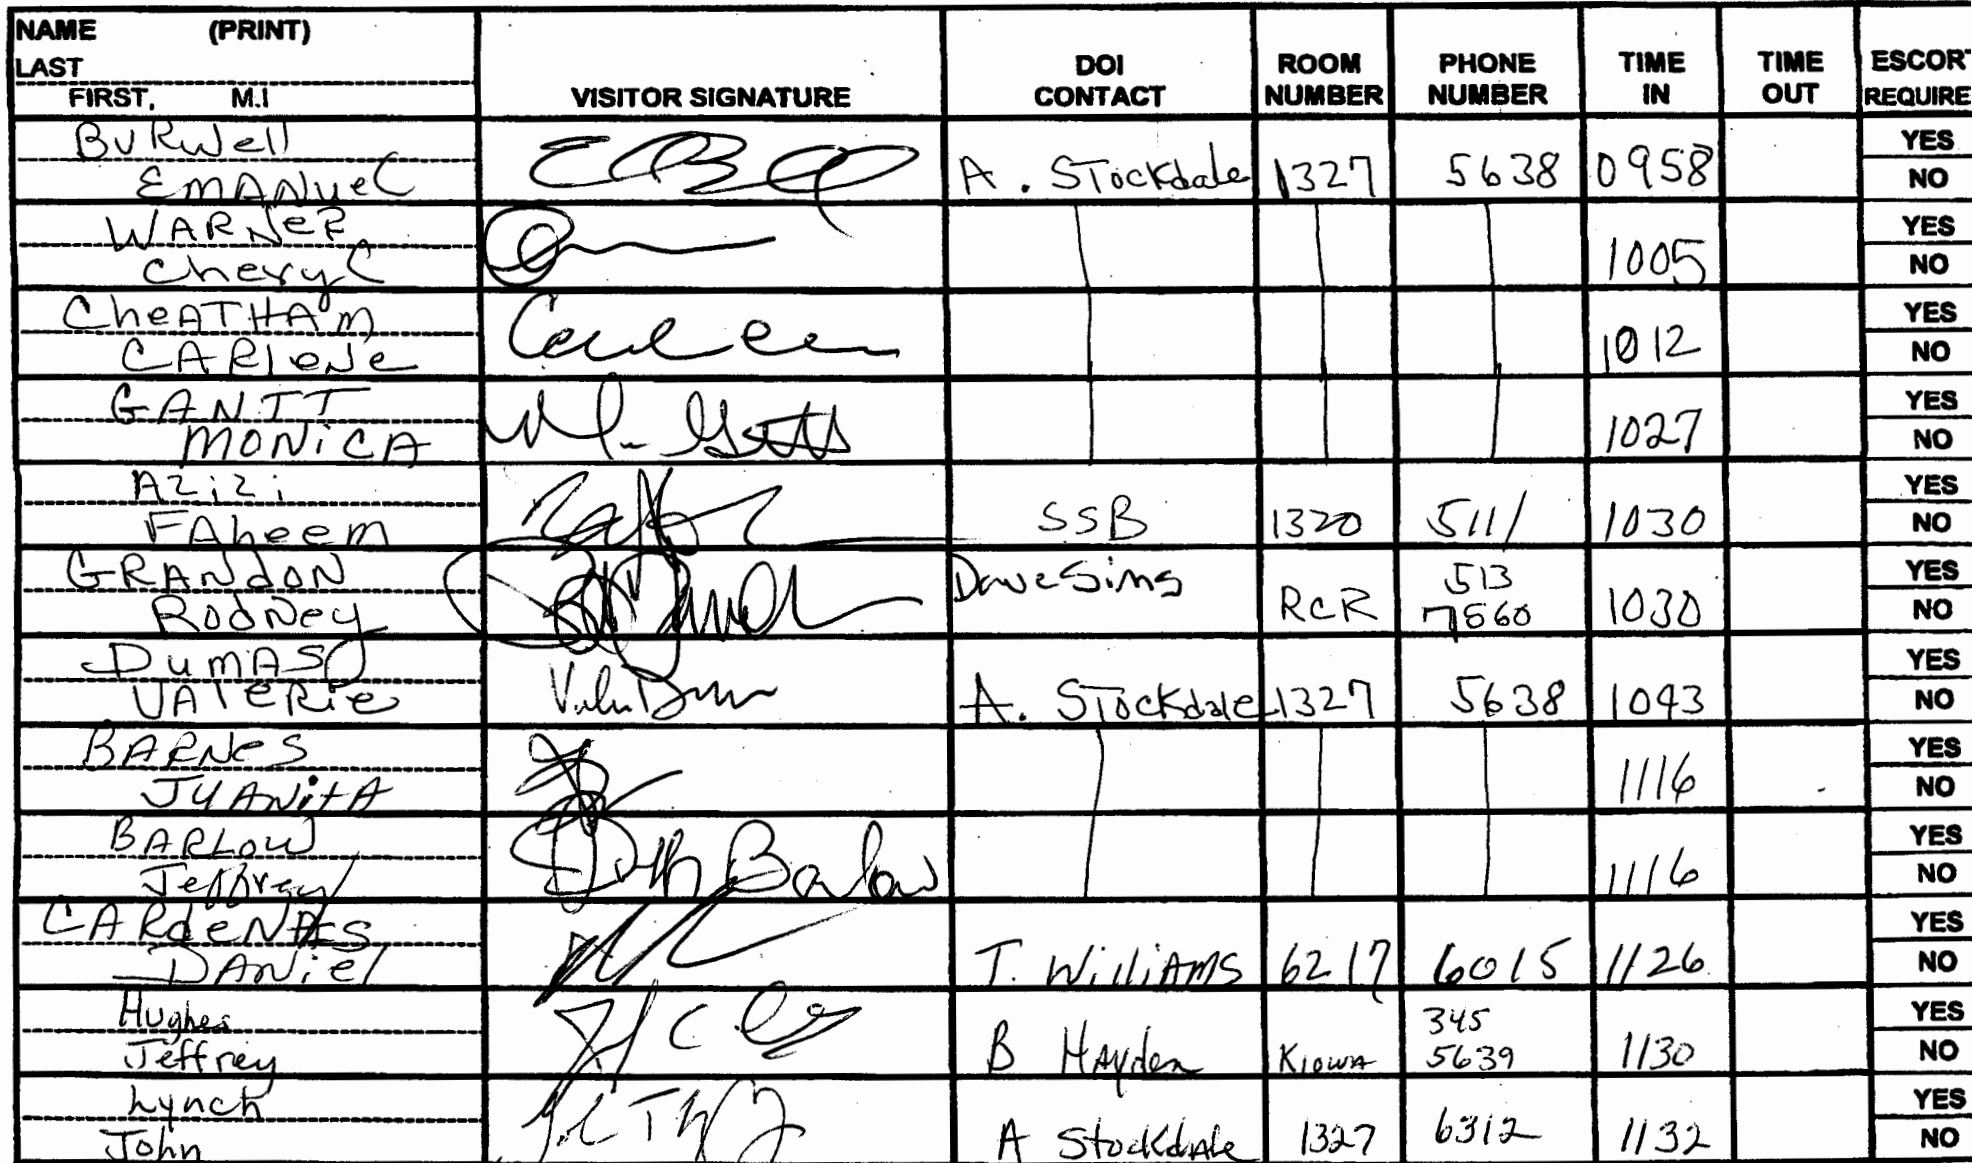 NAME (PRINT)
LAST
FIRST, M.I
VISITOR SIGNATURE
DOI CONTACT
ROOM NUMBER
PHONE NUMBER
TIME IN
TIME OUT
ESCOR
REQUIRE
BURWell
EMANUEL A. STockdale 1327 5638 0958 YES NO
WARNER
CheryL 1005 YES NO
CheATHAM
CARleNe 1012 YES NO
GANTT
MONiCA 1027 YES NO
AZiZi
FAheem SSB 1320 5111 1030 YES NO
GRANdON
RodNey Dave Sims RCR 513 7560 1030 YES NO
DumAS
VAleRie A. STockdale 1327 5638 1043 YES NO
BARNeS
JuANitA 1116 YES NO
BARLOW
Jeffrey Barlow 1116 YES NO
CARdeNAS
DANiel T. WilliAMS 6217 6015 1126 YES NO
Hughes
Jeffrey B Hayden KIOWA 345 5639 1130 YES NO
Lynch
John A Stockdale 1327 6312 1132 YES NO